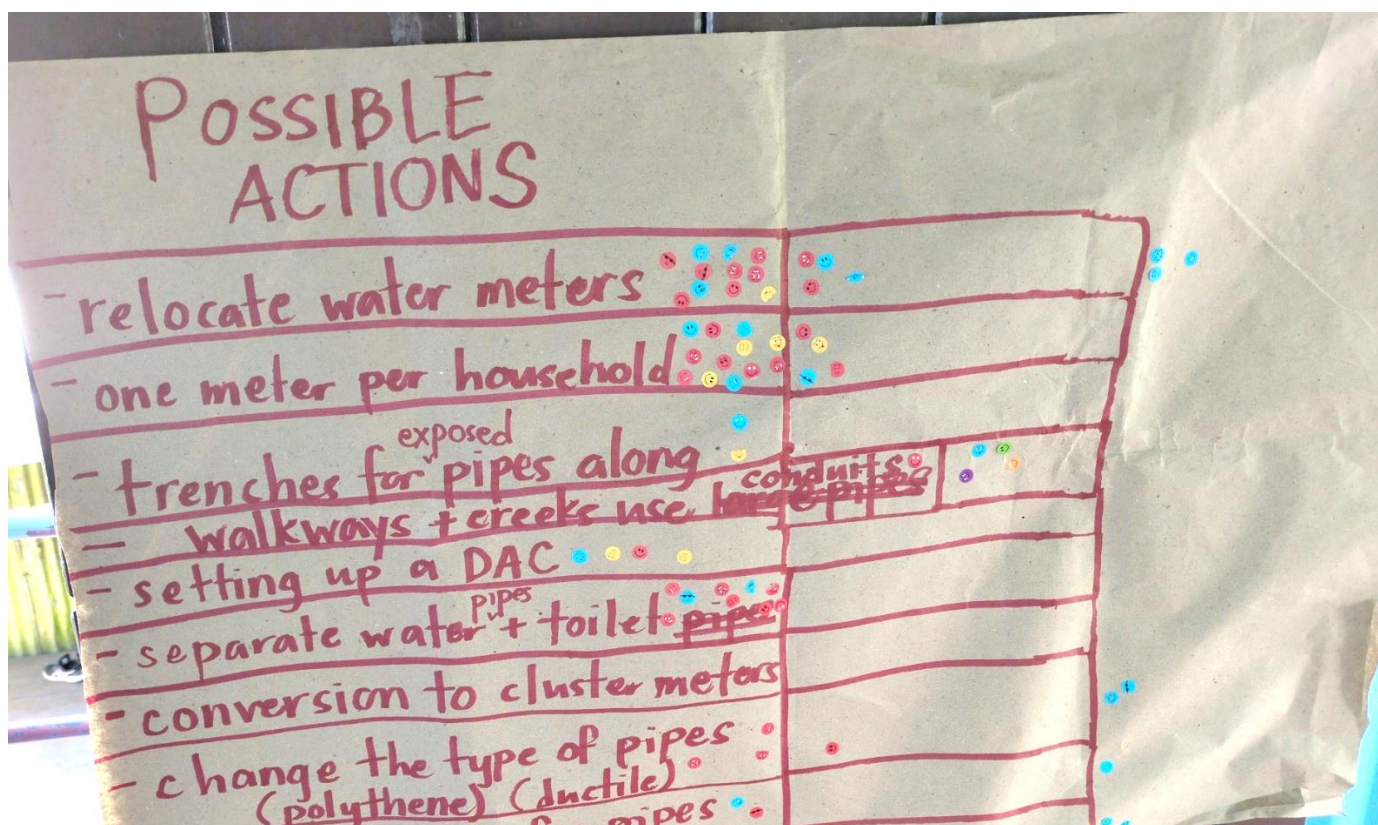 POSSIBLE
ACTIONS
- relocate water meters
- one meter per household
exposed
- trenches for pipes along
conduits
- walkways + creeks use large pipes
- setting up a DAC
pipes
- separate water + toilet pipe
- conversion to cluster meters
- change the type of pipes
(polythene) (ductile)
pipes